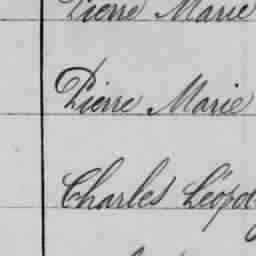 Pierre Marie
Pierre Marie
Charles Léopo